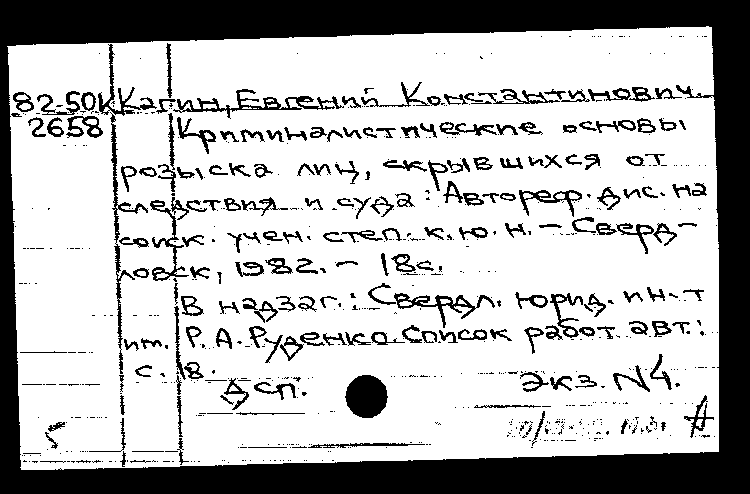 82-50к Кагин, Евгений Константинович.
2658 Криминалистические основы
розыска лиц, скрывшихся от
следствия и суда: Автореф. дис. на
соиск. учен. степ. к.ю.н. – Сверд-
ловск, 1982. – 18с.
В надзаг.: Свердл. юрид. ин-т
им. Р. А. Руденко. Список работ авт.:
с. 18.
ДСП. Экз. N4.
5